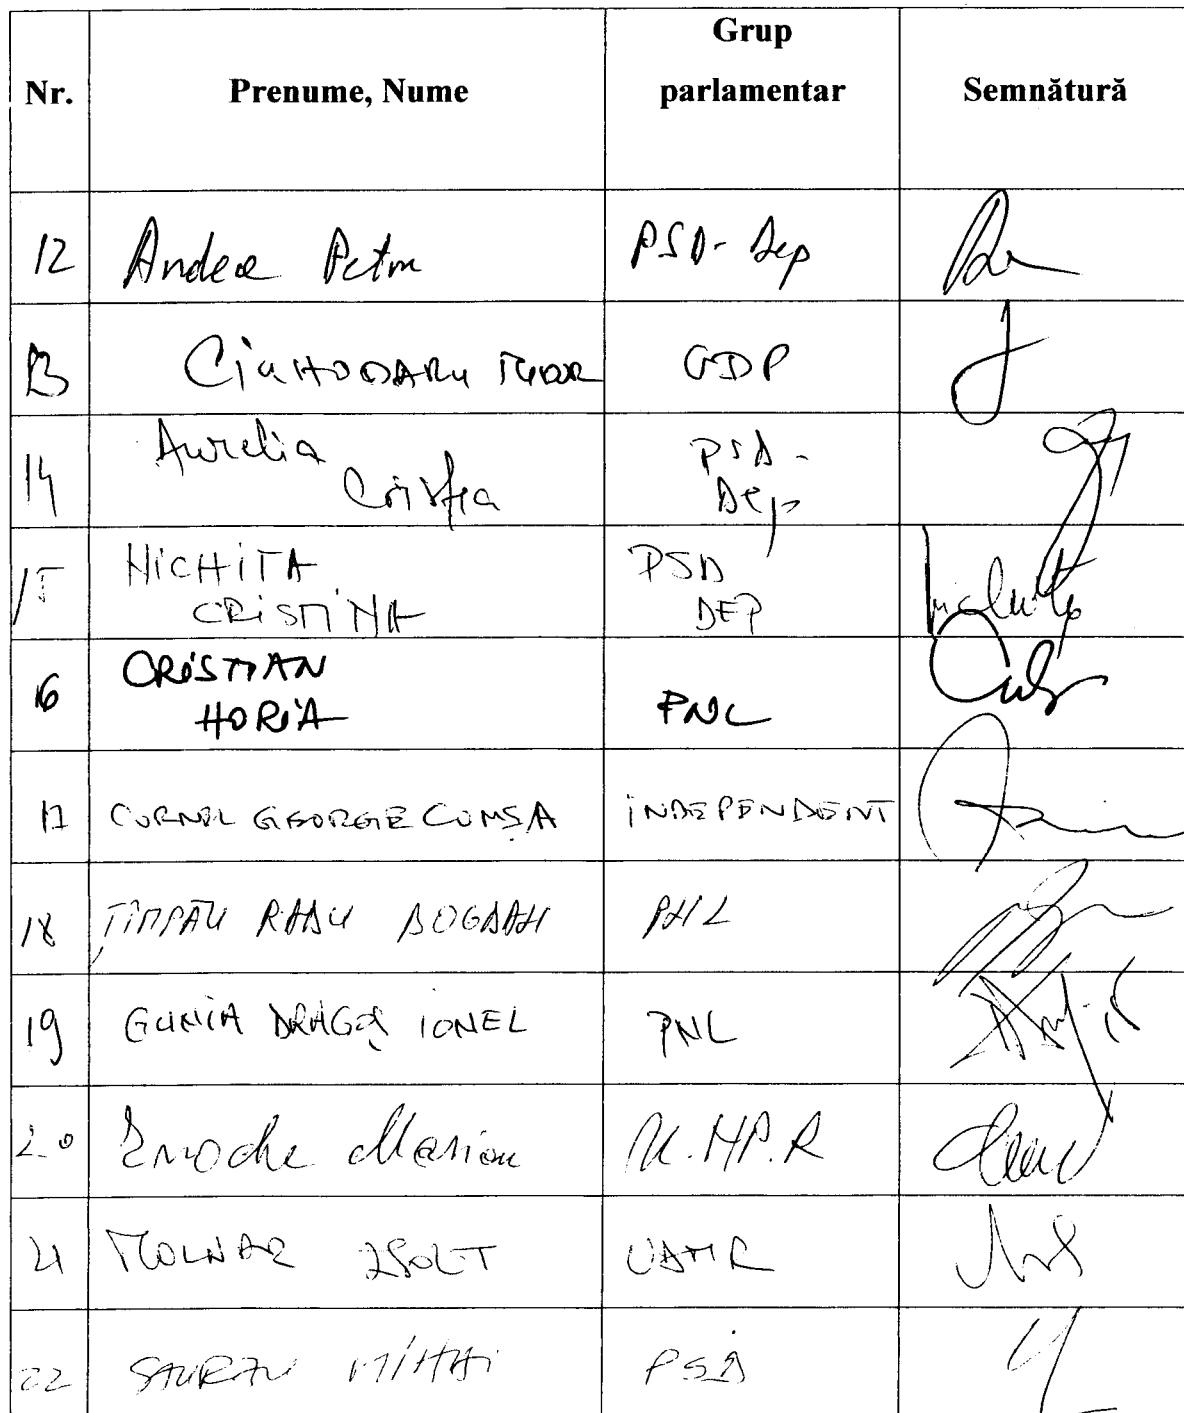 Nr. Prenume, Nume Grup parlamentar Semnătură
12 Andea Petru PSD-Dep
13 CiuHODARu TUDOR GDP
14 Aurelia Cristea PSD-Dep
15 NiCHiTA CRiSTiNA PSD DEP
16 CRiSTIAN HORiA PNL
17 CORNEL GEORGE COMȘA iNDEPENDENT
18 ȚÎMPĂU RADU BOGDAN PNL
19 GUNIA DRAGOȘ IONEL PNL
20 Enache Marian
21 MOLNAR ZSOLT UDMR
22 STURZU MIHAI PSD